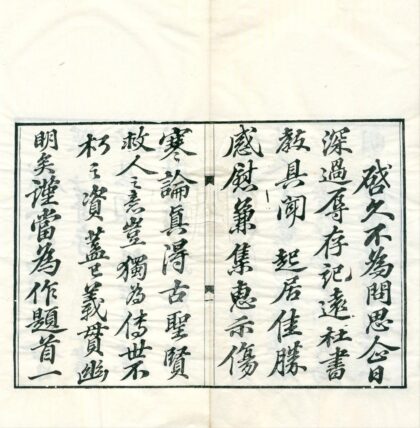 啓久不為問思企日
深過辱存記遠枉書
教具聞起居佳勝
感慰兼集惠示傷
寒論真得古聖賢
救人之意豈獨為傳世不
朽之資蓋已義貫幽
明矣謹當為作題首一